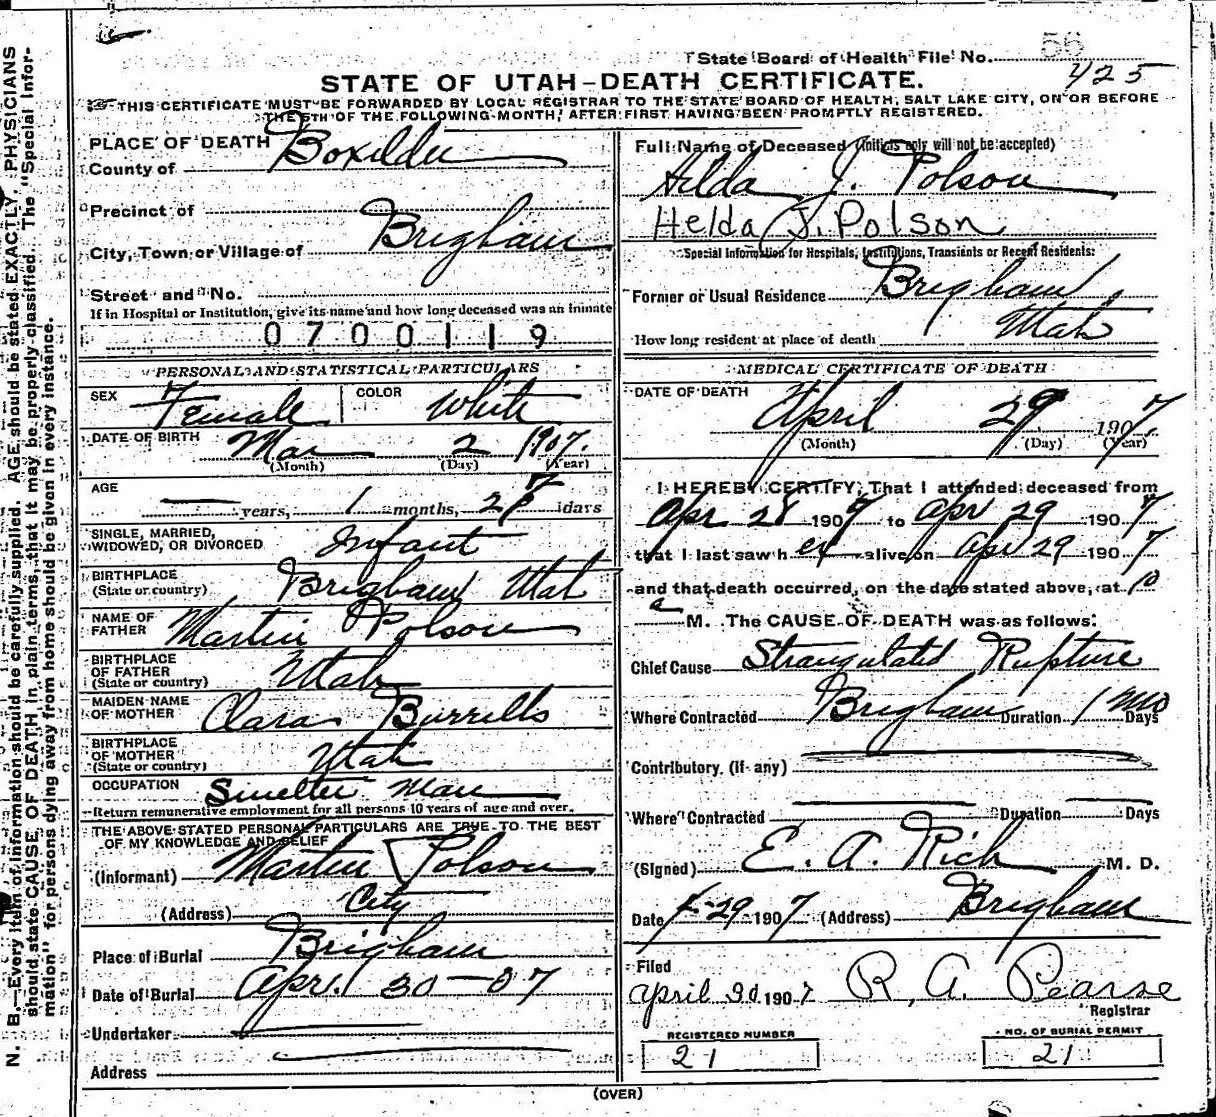 56
State Board of Health File No. 425
STATE OF UTAH—DEATH CERTIFICATE.
THIS CERTIFICATE MUST BE FORWARDED BY LOCAL REGISTRAR TO THE STATE BOARD OF HEALTH, SALT LAKE CITY, ON OR BEFORE
THE 5TH OF THE FOLLOWING MONTH, AFTER FIRST HAVING BEEN PROMPTLY REGISTERED.
PLACE OF DEATH
County of Boxelder
Precinct of
City, Town or Village of Brigham
Street and No.
If in Hospital or Institution, give its name and how long deceased was an inmate
0700119
PERSONAL AND STATISTICAL PARTICULARS
SEX Female COLOR White
DATE OF BIRTH Mar 2 1907.
(Month) (Day) (Year)
AGE
— years, 1 months, 27 days
SINGLE, MARRIED,
WIDOWED, OR DIVORCED Infant
BIRTHPLACE
(State or country) Brigham Utah
NAME OF
FATHER Martin Polson
BIRTHPLACE
OF FATHER
(State or country) Utah
MAIDEN NAME
OF MOTHER Clara Burrells
BIRTHPLACE
OF MOTHER
(State or country) Utah
OCCUPATION Smelter Man
Return remunerative employment for all persons 10 years of age and over.
THE ABOVE STATED PERSONAL PARTICULARS ARE TRUE TO THE BEST
OF MY KNOWLEDGE AND BELIEF
(Informant) Martin Polson
(Address) City
Place of Burial Brigham
Date of Burial Apr. 30—07
Undertaker
Address
Full Name of Deceased (Initials only will not be accepted)
Hilda J. Polson
Helda J. Polson
Special Information for Hospitals, Institutions, Transients or Recent Residents:
Former or Usual Residence Brigham
Utah
How long resident at place of death
MEDICAL CERTIFICATE OF DEATH
DATE OF DEATH
April 29 1907.
(Month) (Day) (Year)
I HEREBY CERTIFY, That I attended deceased from
Apr 28 1907 to Apr 29 1907
that I last saw her alive on Apr 29 1907
and that death occurred, on the date stated above, at 10
a M. The CAUSE OF DEATH was as follows:
Chief Cause Strangulated Rupture
Where Contracted Brigham Duration 1 mo Days
Contributory (If any)
Where Contracted Duration Days
(Signed) E. A. Rich M. D.
Date 4-29 1907 (Address) Brigham
Filed
April 30 1907 R. A. Pearse
Registrar
REGISTERED NUMBER
21
NO. OF BURIAL PERMIT
21
(OVER)
N. B.—Every item of information should be carefully supplied. AGE should be stated EXACTLY. PHYSICIANS
should state CAUSE OF DEATH in plain terms, that it may be properly classified. The "Special Infor-
mation" for persons dying away from home should be given in every instance.